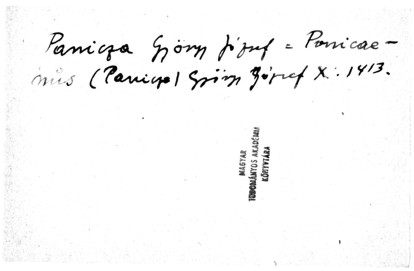 Panicza György József = Panicae-
nus (Panicza) György József X. 1413.
MAGYAR
TUDOMÁNYOS AKADÉMIA
KÖNYVTÁRA